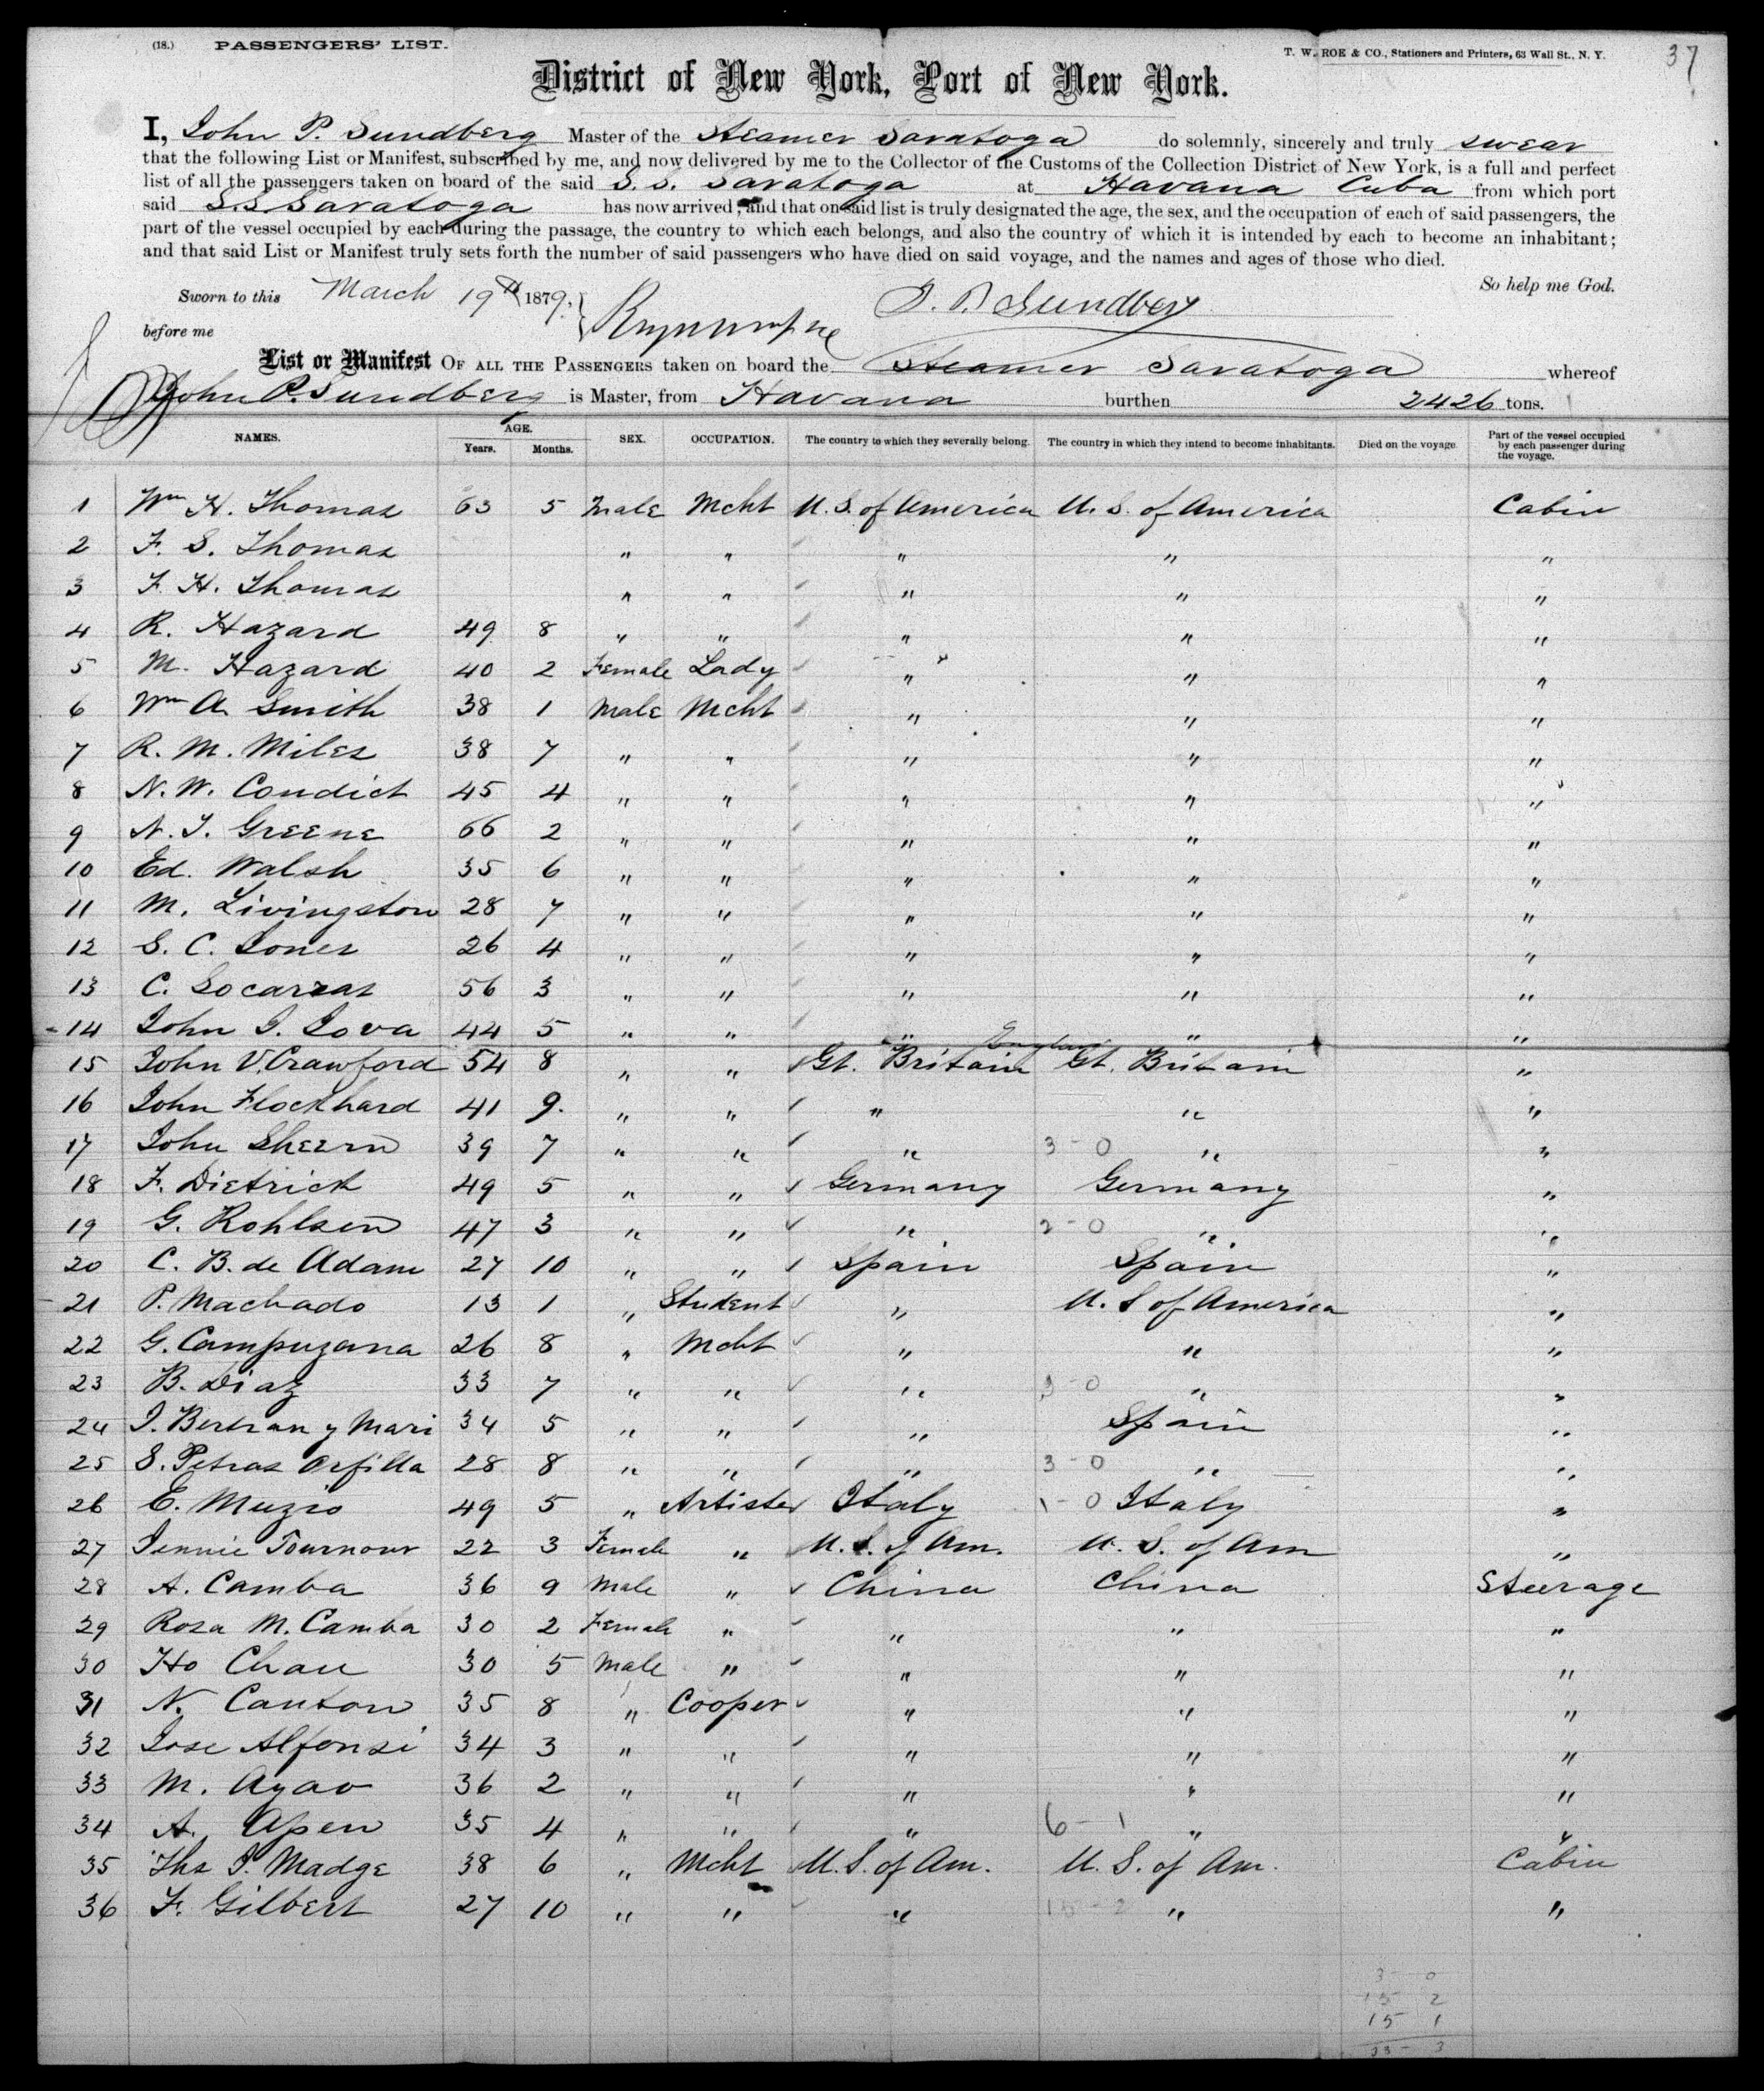 (18.) PASSENGERS' LIST.
T. W. ROE & CO., Stationers and Printers, 63 Wall St., N. Y.
37
District of New York, Port of New York.
I, John P. Sundberg Master of the Steamer Saratoga do solemnly, sincerely and truly swear
that the following List or Manifest, subscribed by me, and now delivered by me to the Collector of the Customs of the Collection District of New York, is a full and perfect
list of all the passengers taken on board of the said S. S. Saratoga at Havana Cuba from which port
said S.S. Saratoga has now arrived; and that on said list is truly designated the age, the sex, and the occupation of each of said passengers, the
part of the vessel occupied by each during the passage, the country to which each belongs, and also the country of which it is intended by each to become an inhabitant;
and that said List or Manifest truly sets forth the number of said passengers who have died on said voyage, and the names and ages of those who died.
So help me God.
Sworn to this March 19th 1879,
J. P. Sundberg
before me
List or Manifest OF ALL THE PASSENGERS taken on board the Steamer Saratoga whereof
John P. Sundberg is Master, from Havana burthen 2426 tons.
NAMES. AGE. Years. Months. SEX. OCCUPATION. The country to which they severally belong. The country in which they intend to become inhabitants. Died on the voyage. Part of the vessel occupied by each passenger during the voyage.
1 Wm H. Thomas 63 5 Male Mcht U. S. of America U. S. of America Cabin
2 F. S. Thomas " " " " "
3 F. H. Thomas " " " " "
4 R. Hazard 49 8 " " " " "
5 M. Hazard 40 2 Female Lady " " "
6 Wm A. Smith 38 1 Male Mcht " " "
7 R. M. Miles 38 7 " " " " "
8 N. W. Condict 45 4 " " " " "
9 N. T. Greene 66 2 " " " " "
10 Ed. Walsh 35 6 " " " " "
11 M. Livingston 28 7 " " " " "
12 S. C. Jones 26 4 " " " " "
13 C. Socarras 56 3 " " " " "
14 John J. Jova 44 5 " " " " "
15 John V. Crawford 54 8 " " Gt. Britain England Gt. Britain "
16 John Flockhard 41 9. " " " " "
17 John Sheern 39 7 " " " 3 - 0 " "
18 F. Dietrich 49 5 " " Germany Germany "
19 G. Kohlsen 47 3 " " " 2 - 0 " "
20 C. B. de Adam 27 10 " " Spain Spain "
21 P. Machado 13 1 " Student " U. S of America "
22 G. Campuzana 26 8 " Mcht " " "
23 B. Diaz 33 7 " " " 3 - 0 " "
24 J. Bertran y Mari 34 5 " " " Spain "
25 S. Petras Orfilla 28 8 " " " 3 - 0 " "
26 E. Muzio 49 5 " Artiste Italy 1 - 0 Italy "
27 Jennie Tournour 22 3 Female " U. S. of Am. U. S. of Am "
28 A. Camba 36 9 Male " China China Steerage
29 Rosa M. Camba 30 2 Female " " " "
30 Ho Chau 30 5 Male " " " "
31 N. Canton 35 8 " Cooper " " "
32 Jose Alfonsi 34 3 " " " " "
33 M. Ayao 36 2 " " " " "
34 A. Apen 35 4 " " " 6 - 1 " "
35 Ths J. Madge 38 6 " Mcht U. S. of Am. U. S. of Am. Cabin
36 F. Gilbert 27 10 " " " 15 - 2 " "
3 - 0
15 2
15 1
33 - 3